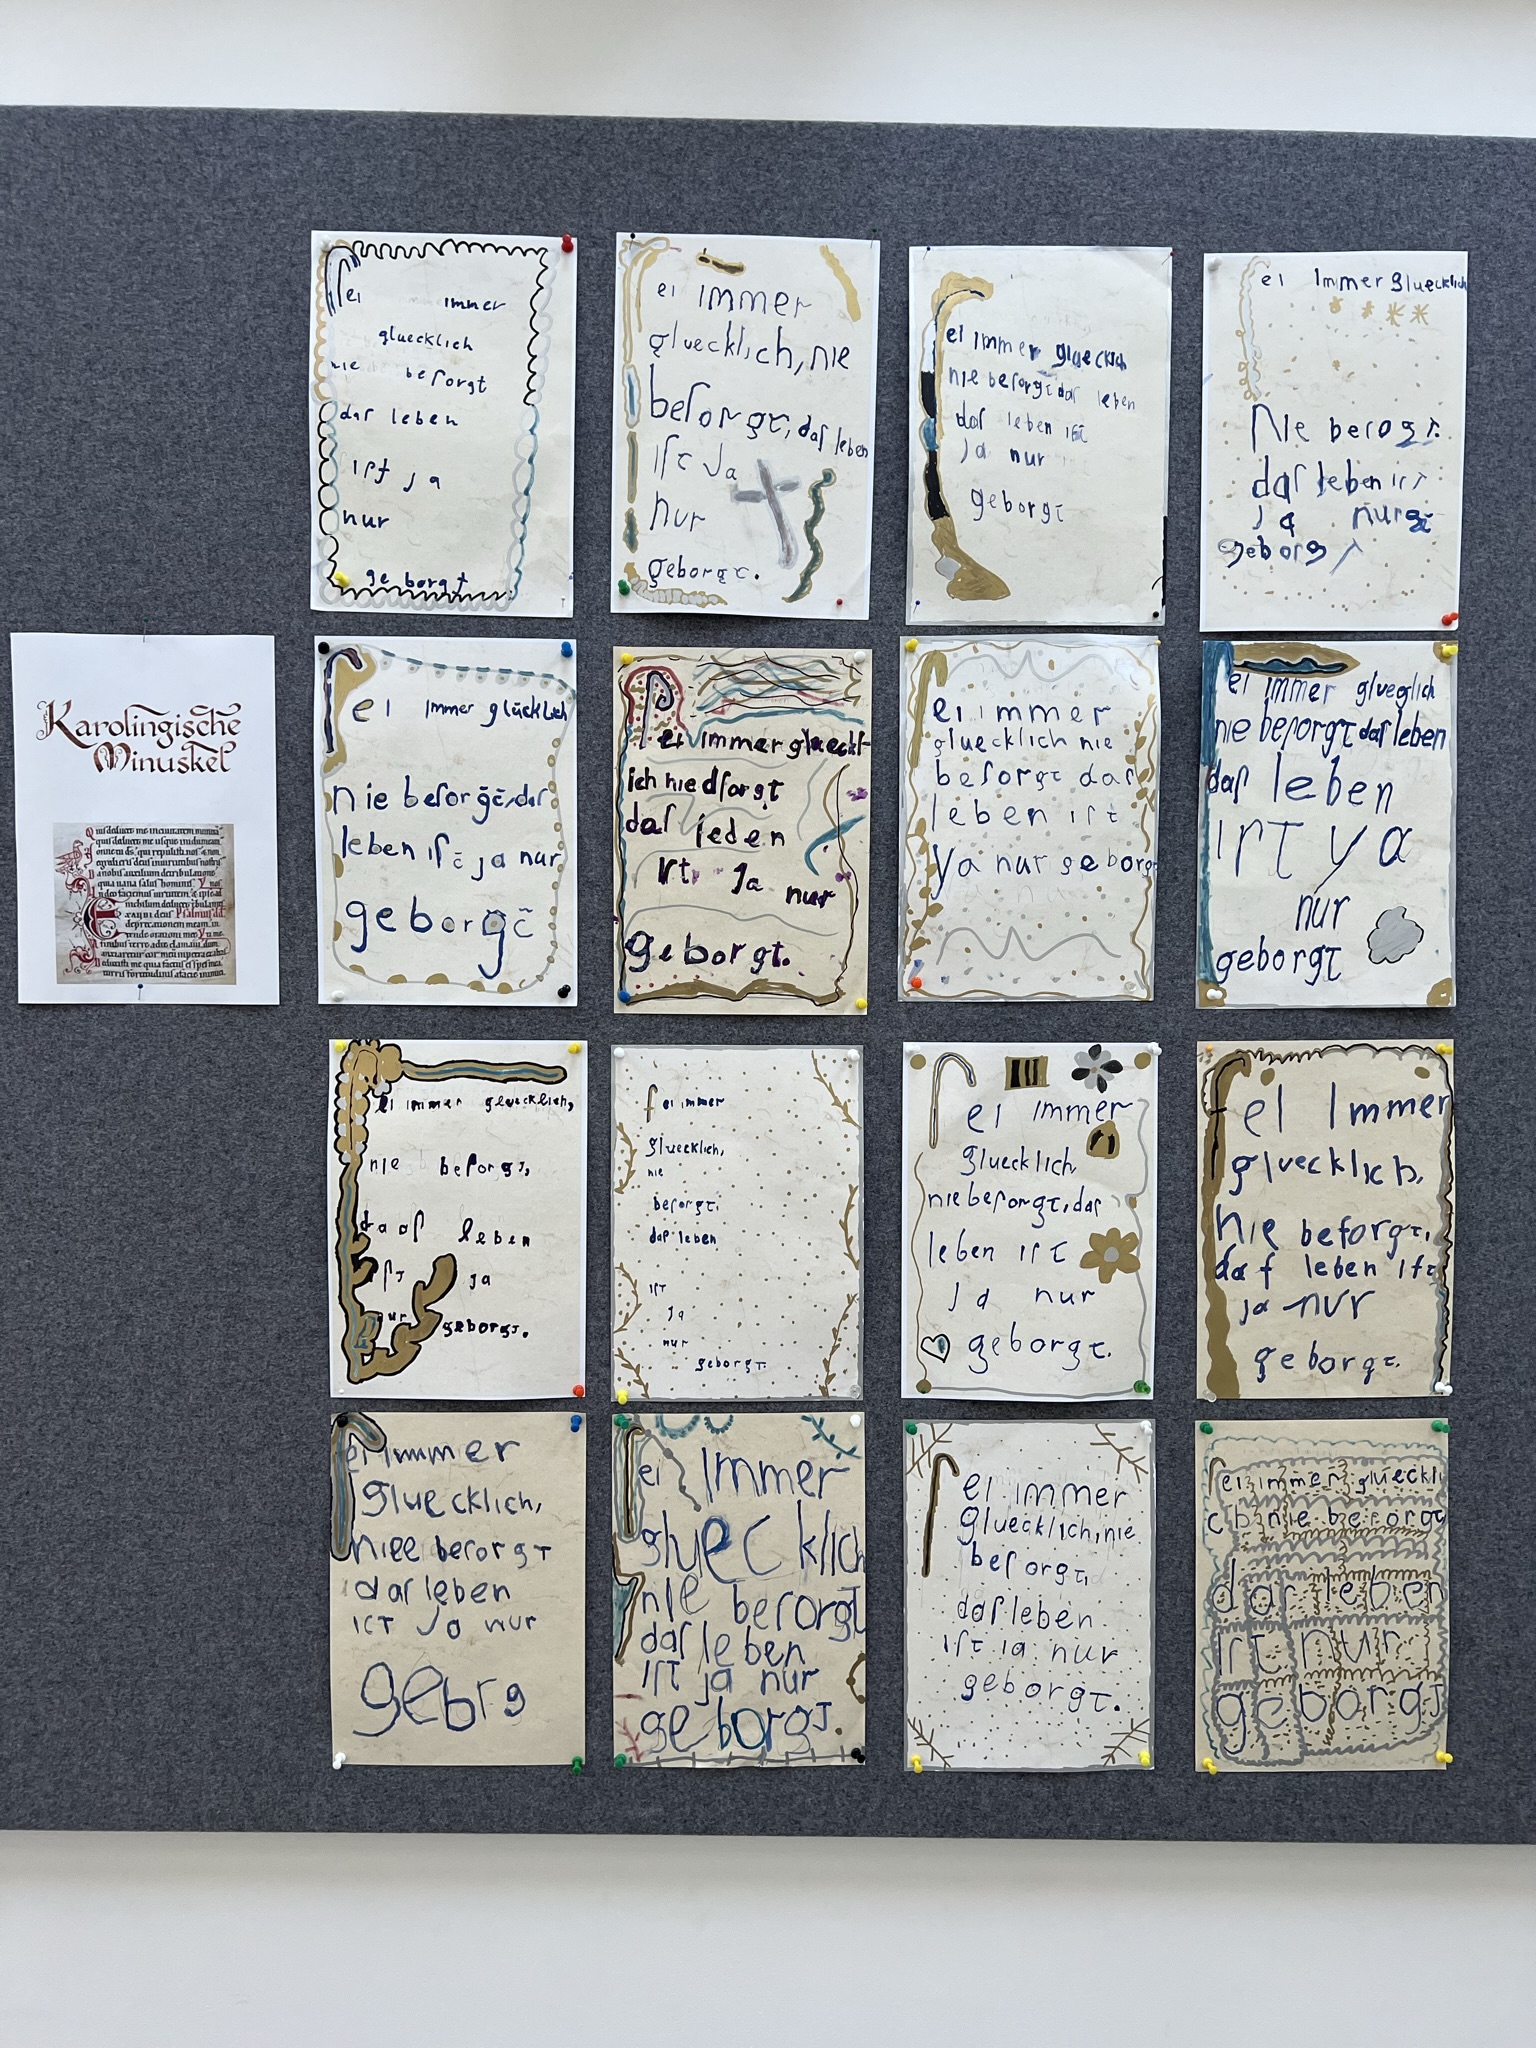 Karolingische
Minuskel
ſei immer
gluecklich
nie beſorgt
daſ leben
iſt ja
nur
geborgt
ſei immer
gluecklich, nie
beſorgt, daſ leben
iſt ja
nur
geborgt.
ſei immer gluecklich
nie beſorgt daſ leben
daſ leben iſt
ja nur
geborgt
ſei immer gluecklich
nie beſorgt.
daſ leben iſt
ja nur
geborgt
ſei immer glücklich
nie beſorgt, daſ
leben iſt ja nur
geborgt
ſei immer glueckl-
ich nie
daſ leben
iſt ja nur
geborgt.
ſei immer
gluecklich nie
beſorgt daſ
leben iſt
ya nur geborgt
ſei immer glueglich
nie beſorgt daſ leben
daſ leben
iſt ya
nur
geborgt
ſei immer gluecklich,
nie beſorgt,
daaſ leben
iſt ja
nur geborgt.
ſei immer
gluecklich,
nie
beſorgt.
daſ leben
iſt
ja
nur
geborgt.
ſei immer
gluecklich,
nie beſorgt, daſ
leben iſt
ja nur
geborgt.
ſei immer
gluecklich,
nie beſorgt,
daſ leben iſt
ja nur
geborgt.
ſei immer
gluecklich,
niee beſorgt
daſ leben
iſt ja nur
gebrg
ſei immer
gluecklich
nie beſorgt
daſ leben
iſt ja nur
geborgt.
ſei immer
gluecklich, nie
beſorgt,
daſ leben
iſt ja nur
geborgt.
ſei immer glueckli
ch nie beſorgt
daſ leben
iſt nur
geborgt